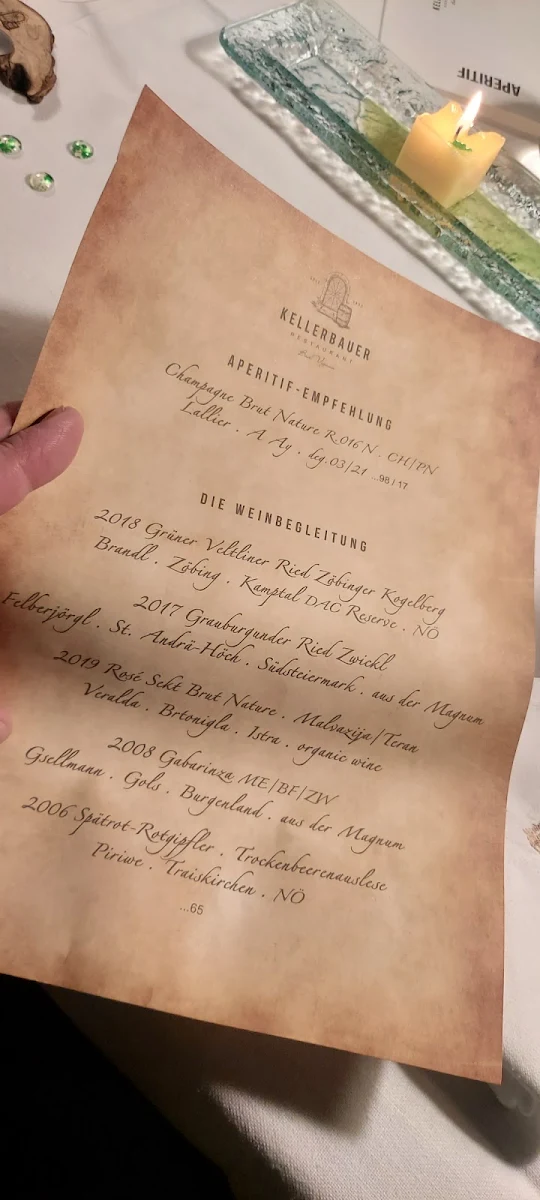 APERITIF
KELLERBAUER
RESTAURANT
Bad Vigaun
APERITIF-EMPFEHLUNG
Champagne Brut Nature R.016 N . CH/PN
Lallier . A Ay . deg.03/21 ...98 / 17
DIE WEINBEGLEITUNG
2018 Grüner Veltliner Ried Zöbinger Kogelberg
Brandl . Zöbing . Kamptal DAC Reserve . NÖ
2017 Grauburgunder Ried Zwickl
Felberjörgl . St. Andrä-Höch . Südsteiermark . aus der Magnum
2019 Rosé Sekt Brut Nature . Malvazija/Teran
Veralda . Brtonigla . Istra . organic wine
2008 Gabarinza ME/BF/ZW
Gsellmann . Gols . Burgenland . aus der Magnum
2006 Spätrot-Rotgipfler . Trockenbeerenauslese
Piriwe . Traiskirchen . NÖ
...65